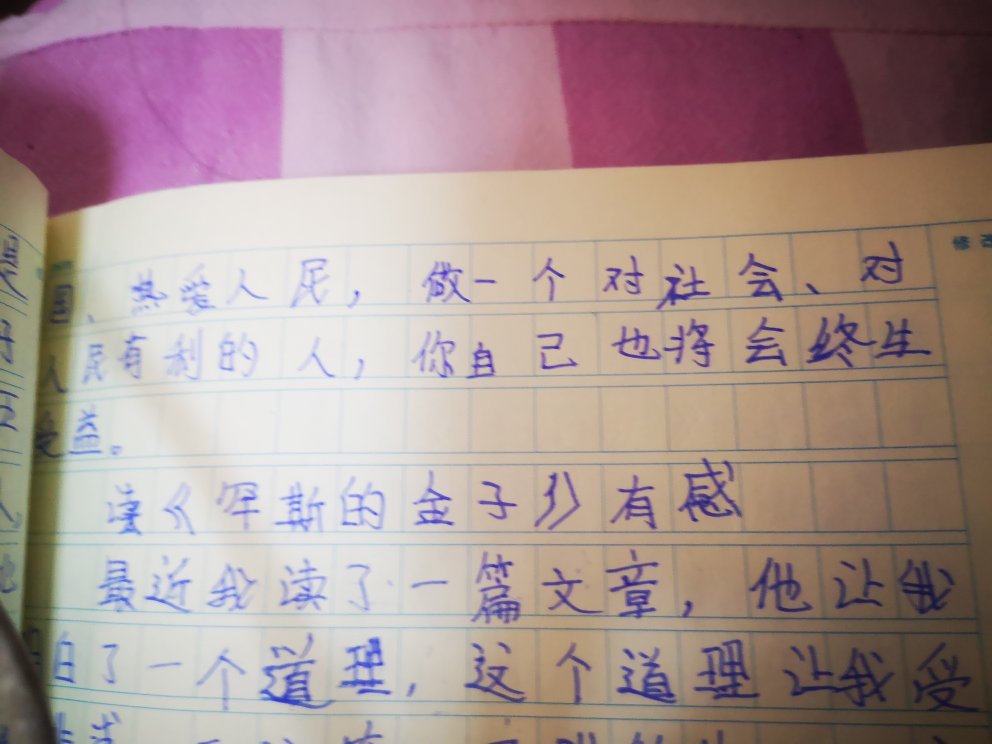 国、热爱人民，做一个对社会、对
人民有利的人，你自己也将会终生
受益。
读《罕斯的金子》有感
最近我读了一篇文章，他让我
白了一个道理，这个道理让我受
修改